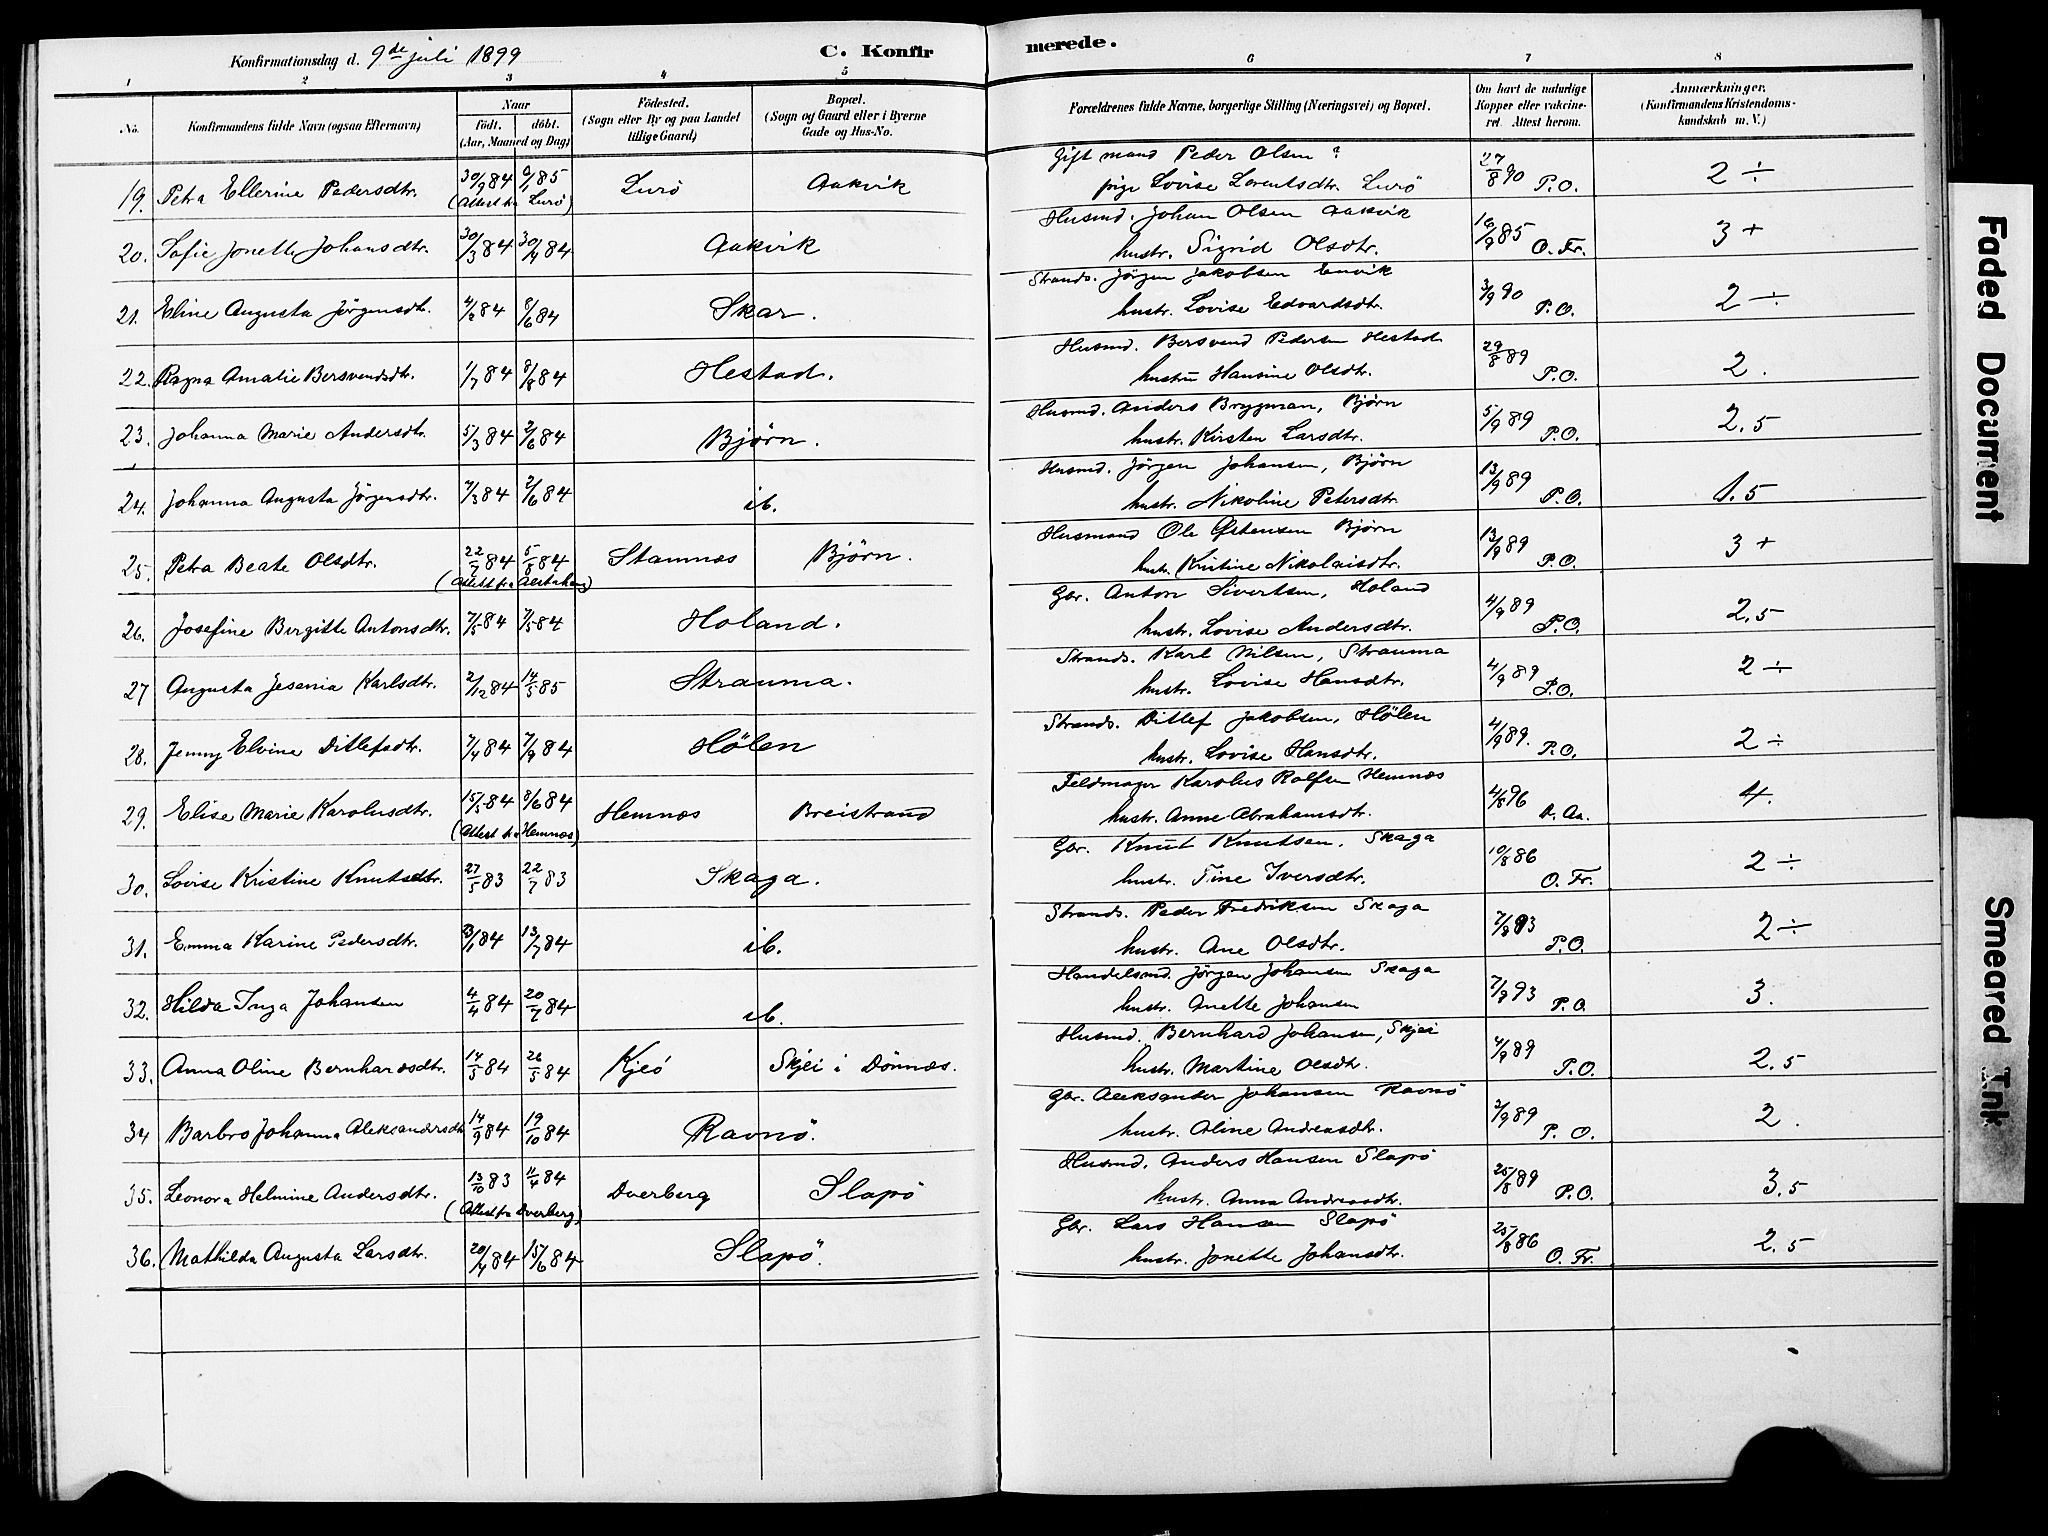 Konfirmationsdag d. 9de juli 1899 C. Konfir
merede.
1 2 3 4 5
6 7 8
No. Konfirmandens fulde Navn (ogsaa Efternavn) Naar født. døbt. (Aar, Maaned og Dag) Födested. (Sogn eller By og paa Landet tillige Gaard) Bopæl. (Sogn og Gaard eller i Byerne Gade og Hus-No.
Forældrenes fulde Navne, borgerlige Stilling (Næringsvei) og Bopæl. Om havt de naturlige Kopper eller vakcineret. Attest herom. Anmærkninger. (Konfirmandens Kristendomskundskab m. V.)
19. Petra Ellerine Pedersdtr. 30/9 84 6/1 85 Lurö Aakvik
(Attest fra Lurö)
Gift mand Peder Olsen ? 27/8 90
pige Lovise Lorentsdtr. Lurö P.O. 2 ÷
20. Sofie Jonette Johansdtr. 30/3 84 30/4 84 Aakvik
Husmd. Johan Olsen Aakvik 16/9 85
hustr. Sigrid Olsdtr. O. Fr. 3 +
21. Eline Augusta Jörgensdt. 4/2 84 8/6 84 Skar.
Strands. Jörgen Jakobsen Envik 3/9 90
hustr. Lovise Edvardsdtr. P.O. 2 ÷
22. Ragna Amalie Bersvendsdtr. 1/7 84 8/8 84 Hestad.
Husmd. Bersvend Pedersen Hestad 29/8 89
hustru Hansine Olsdtr. P.O. 2.
23. Johanna Marie Andersdtr. 5/3 84 2/6 84 Bjørn.
Husmd. Anders Brygman, Bjørn 5/9 89
hustr. Kirsten Larsdtr. P.O. 2,5
24. Johanna Augusta Jörgensdtr. 7/3 84 2/6 84 ib.
Husmd. Jörgen Johansen, Bjørn 13/9 89
hustr. Nikoline Petersdtr. P.O. 1.5
25. Petra Beate Olsdtr. 22/5 84 5/8 84 Stamnæs Bjørn.
(Attest fra Alstahaug)
Husmand Ole Østensen Bjørn 13/9 89
hustr. Kristine Nikolaisdtr. P.O. 3 +
26. Josefine Birgitte Antonsdtr. 7/5 84 7/5 84 Holand.
Gbr. Anton Sivertsen, Holand 4/9 89
hustr. Lovise Andersdtr. P.O. 2,5
27 Augusta Jesenia Karlsdtr. 2/12 84 14/5 85 Strauma.
Strands. Karl Nilsen, Strauma 4/9 89
hustr. Lovise Hansdtr. P.O. 2 ÷
28. Jenny Elvine Ditlefsdtr. 7/4 84 7/9 84 Hölen
Strands. Ditlef Jakobsen, Hölen 4/9 89.
hustr. Lovise Hansdtr. P.O. 2 ÷
29. Elise Marie Karolusdtr. 15/5 84 8/6 84 Hemnæs Breistrand
(Attest fra Hemnæs)
Feldmager Karolus Rolfsen Hemnæs 4/8 96
hustr. Anne Abrahamsdtr. A. Aa. 4.
30. Lovise Kristine Knutsdtr. 27/5 83 22/7 83 Skaga.
Gbr. Knut Knutsen. Skaga 10/8 86
hustr. Tine Iversdtr. O. Fr. 2 ÷
31. Emma Karine Pedersdtr. 84 13/7 84 ib.
Strands. Peder Fredriksen Skaga 7/9 93
hustr. Ane Olsdtr. P.O. 2 ÷
32. Hilda Inga Johansen 4/4 84 20/7 84 ib.
Handelsmd. Jörgen Johansen Skaga 7/9 93
hustr. Anette Johansen P.O. 3.
33. Anna Oline Bernhardsdtr. 14/5 84 26/5 84 Kjeö Skjei i Dönnæs.
Husmd. Bernhard Johansen, Skjei 4/9 89
hustr. Martine Olsdtr. P.O. 2.5
34 Barbro Johanna Aleksandersdtr 14/9 84 19/10 84 Ravnö.
Gbr. Aleksander Johansen Ravnö 2/9 89
hustr. Oline Andreasdtr. P. O. 2.
35. Leonora Helmine Andersdtr. 13/10 83 11/4 84 Dverberg Slapö
(Attest fra Dverberg)
Husmd. Anders Hansen Slapö 25/8 89
hustr. Anna Andreasdtr. P.O. 3.5
36. Mathilda Augusta Larsdtr. 20/4 84 15/6 84 Slapö.
Gbr. Lars Hansen Slapö 25/8 86
hustr. Jonette Johansdtr. O. Fr. 2.5
Faded Document
Smeared Ink